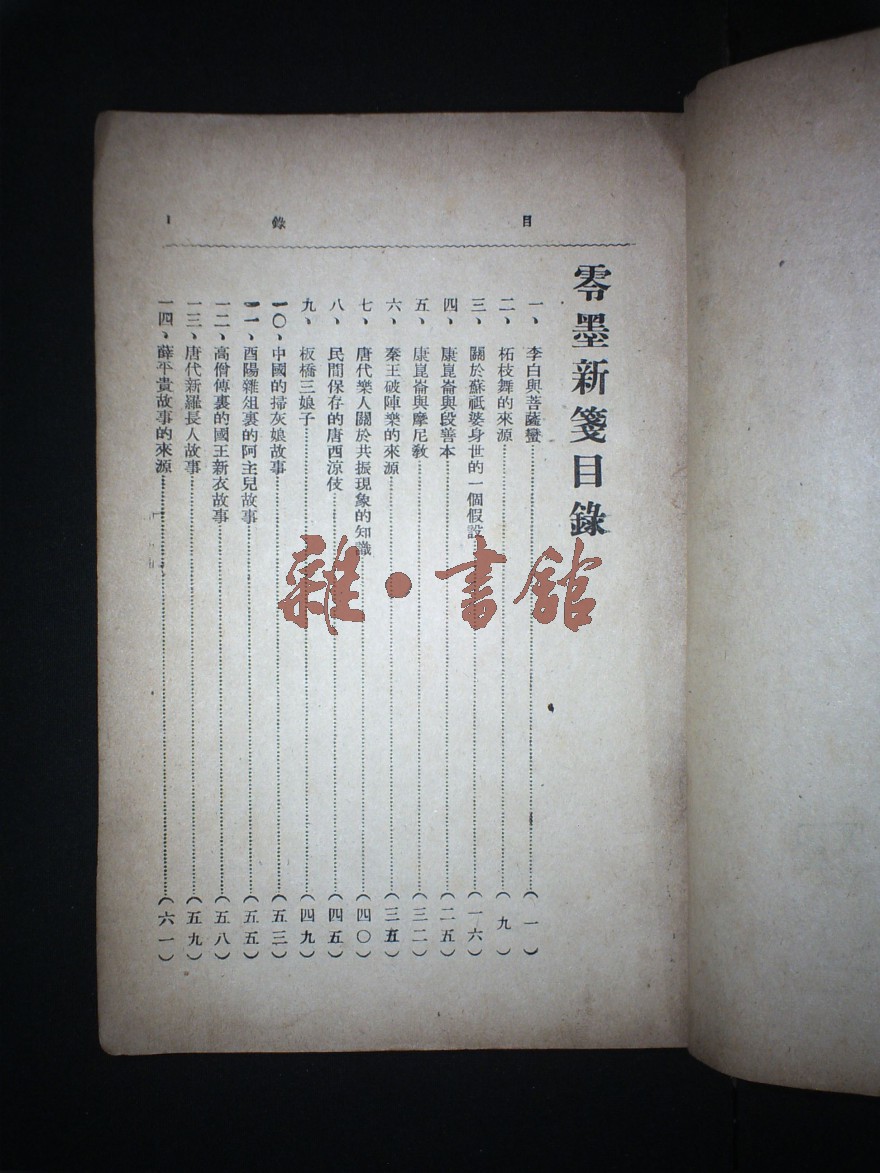 目 錄 1
零墨新箋目錄
一、李白與菩薩蠻（一）
二、柘枝舞的來源（九）
三、關於蘇祗婆身世的一個假設（一六）
四、康崑崙與段善本（二五）
五、康崑崙與摩尼教（三二）
六、秦王破陣樂的來源（三五）
七、唐代樂人關於共振現象的知識（四〇）
八、民間保存的唐西涼伎（四五）
九、板橋三娘子（四九）
一〇、中國的掃灰娘故事（五三）
一一、酉陽雜俎裏的阿主兒故事（五五）
一二、高僧傳裏的國王新衣故事（五八）
一三、唐代新羅長人故事（五九）
一四、薛平貴故事的來源（六一）
雜·書館